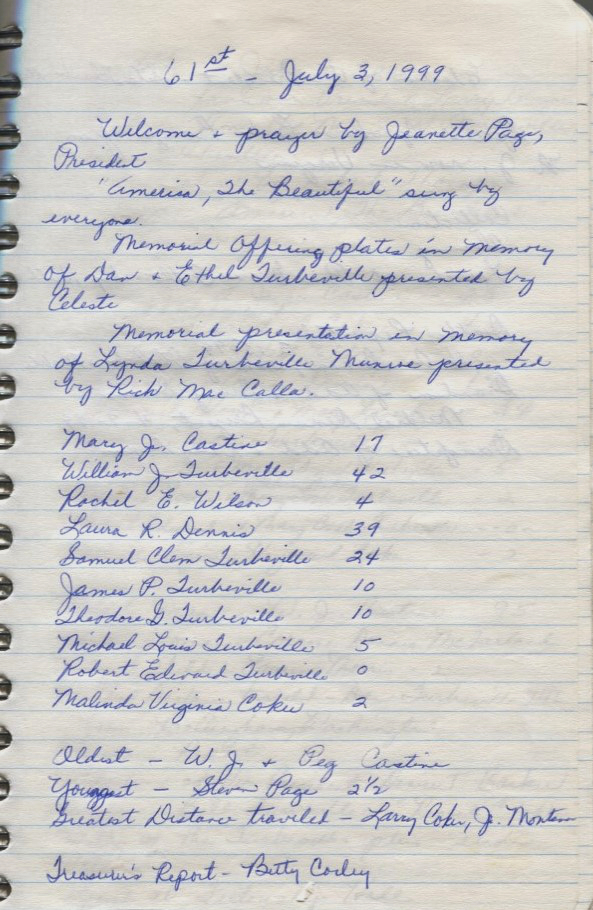 61st - July 3, 1999
Welcome + prayer by Jeanette Page,
President
"America, The Beautiful" sung by
everyone.
Memorial Offering plates in memory
of Dan + Ethel Turbeville presented by
Celeste
Memorial presentation in memory
of Lynda Turbeville Munroe presented
by Rick Mac Calla.
Mary J. Castine 17
William J. Turbeville 42
Rachel E. Wilson 4
Laura R. Dennis 39
Samuel Clem Turbeville 24
James P. Turbeville 10
Theodore G. Turbeville 10
Michael Louis Turbeville 5
Robert Edward Turbeville 0
Malinda Virginia Coker 2
Oldest - W. J. + Peg Castine
Youngest - Steven Page 2 1/2
Greatest Distance traveled - Larry Coker, Jr. Montana
Treasurer's Report - Betty Corley